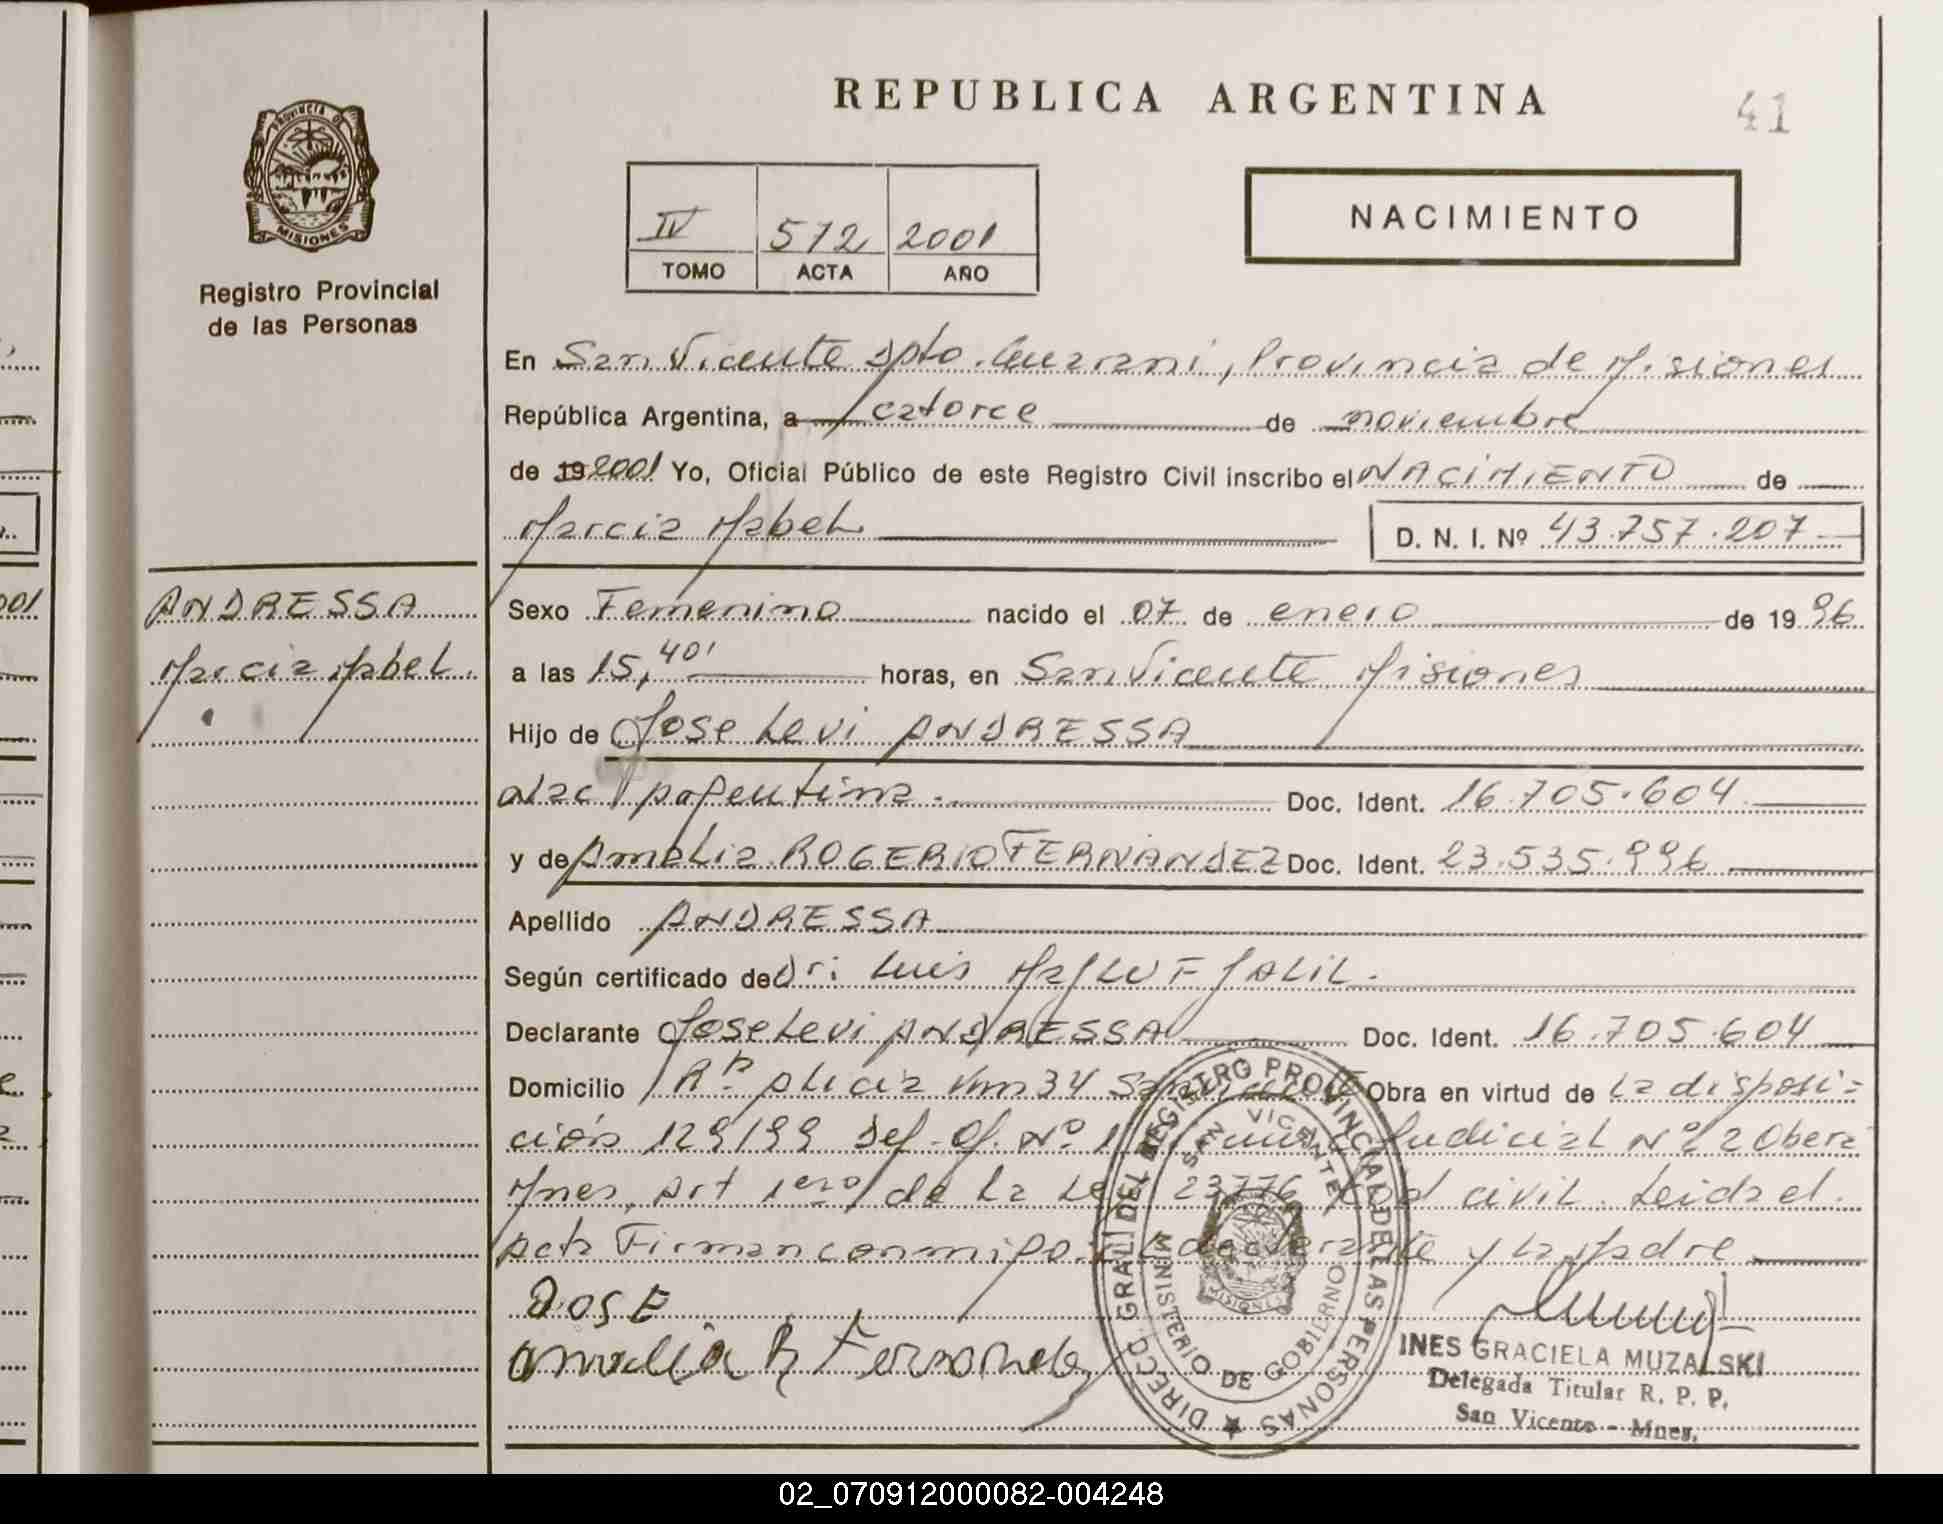 REPUBLICA ARGENTINA
41
PROVINCIA DE
MISIONES
Registro Provincial
de las Personas
IV 572 2001
TOMO ACTA AÑO
NACIMIENTO
En San Vicente Dpto. Guarani, Provincia de Misiones
República Argentina, a catorce de noviembre
de 19 2001 Yo, Oficial Público de este Registro Civil inscribo el NACIMIENTO de
Marcia Mabel D. N. I. Nº 43.757.207
ANDRESSA
Marcia Mabel.
Sexo Femenino nacido el 07 de enero de 1996
a las 15,40' horas, en San Vicente Misiones
Hijo de Jose Levi ANDRESSA
Nac Argentina. Doc. Ident. 16.705.604
y de Amalia ROGERIO FERNANDEZ Doc. Ident. 23.535.996
Apellido ANDRESSA
Según certificado de Dr: Luis JALIL.
Declarante Jose Levi ANDRESSA Doc. Ident. 16.705.604
Domicilio Km 34 San Vicente Obra en virtud de la disposi=
ción 129/99 Def. Of. Nº 1 Judicial Nº 2 Obera
Mnes, Art 1ero de la Ley 23776 Cod civil. Leida el
Acta Firman conmigo el declarante y la Madre
JOSE
amalia R Fernandez
DIRECC GRAL DEL REGISTRO PROVINCIAL DE LAS PERSONAS
SAN VICENTE
MINISTERIO DE GOBIERNO
MISIONES
INES GRACIELA MUZALSKI
Delegada Titular R. P. P.
San Vicente - Mnes.
02_070912000082-004248